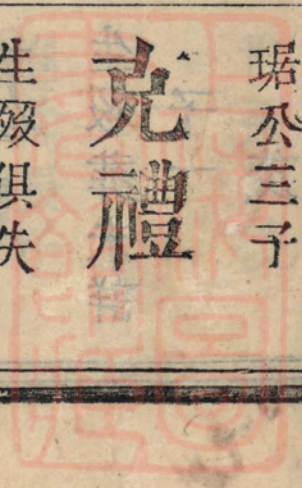 琚公三子
克禮
生殁俱失